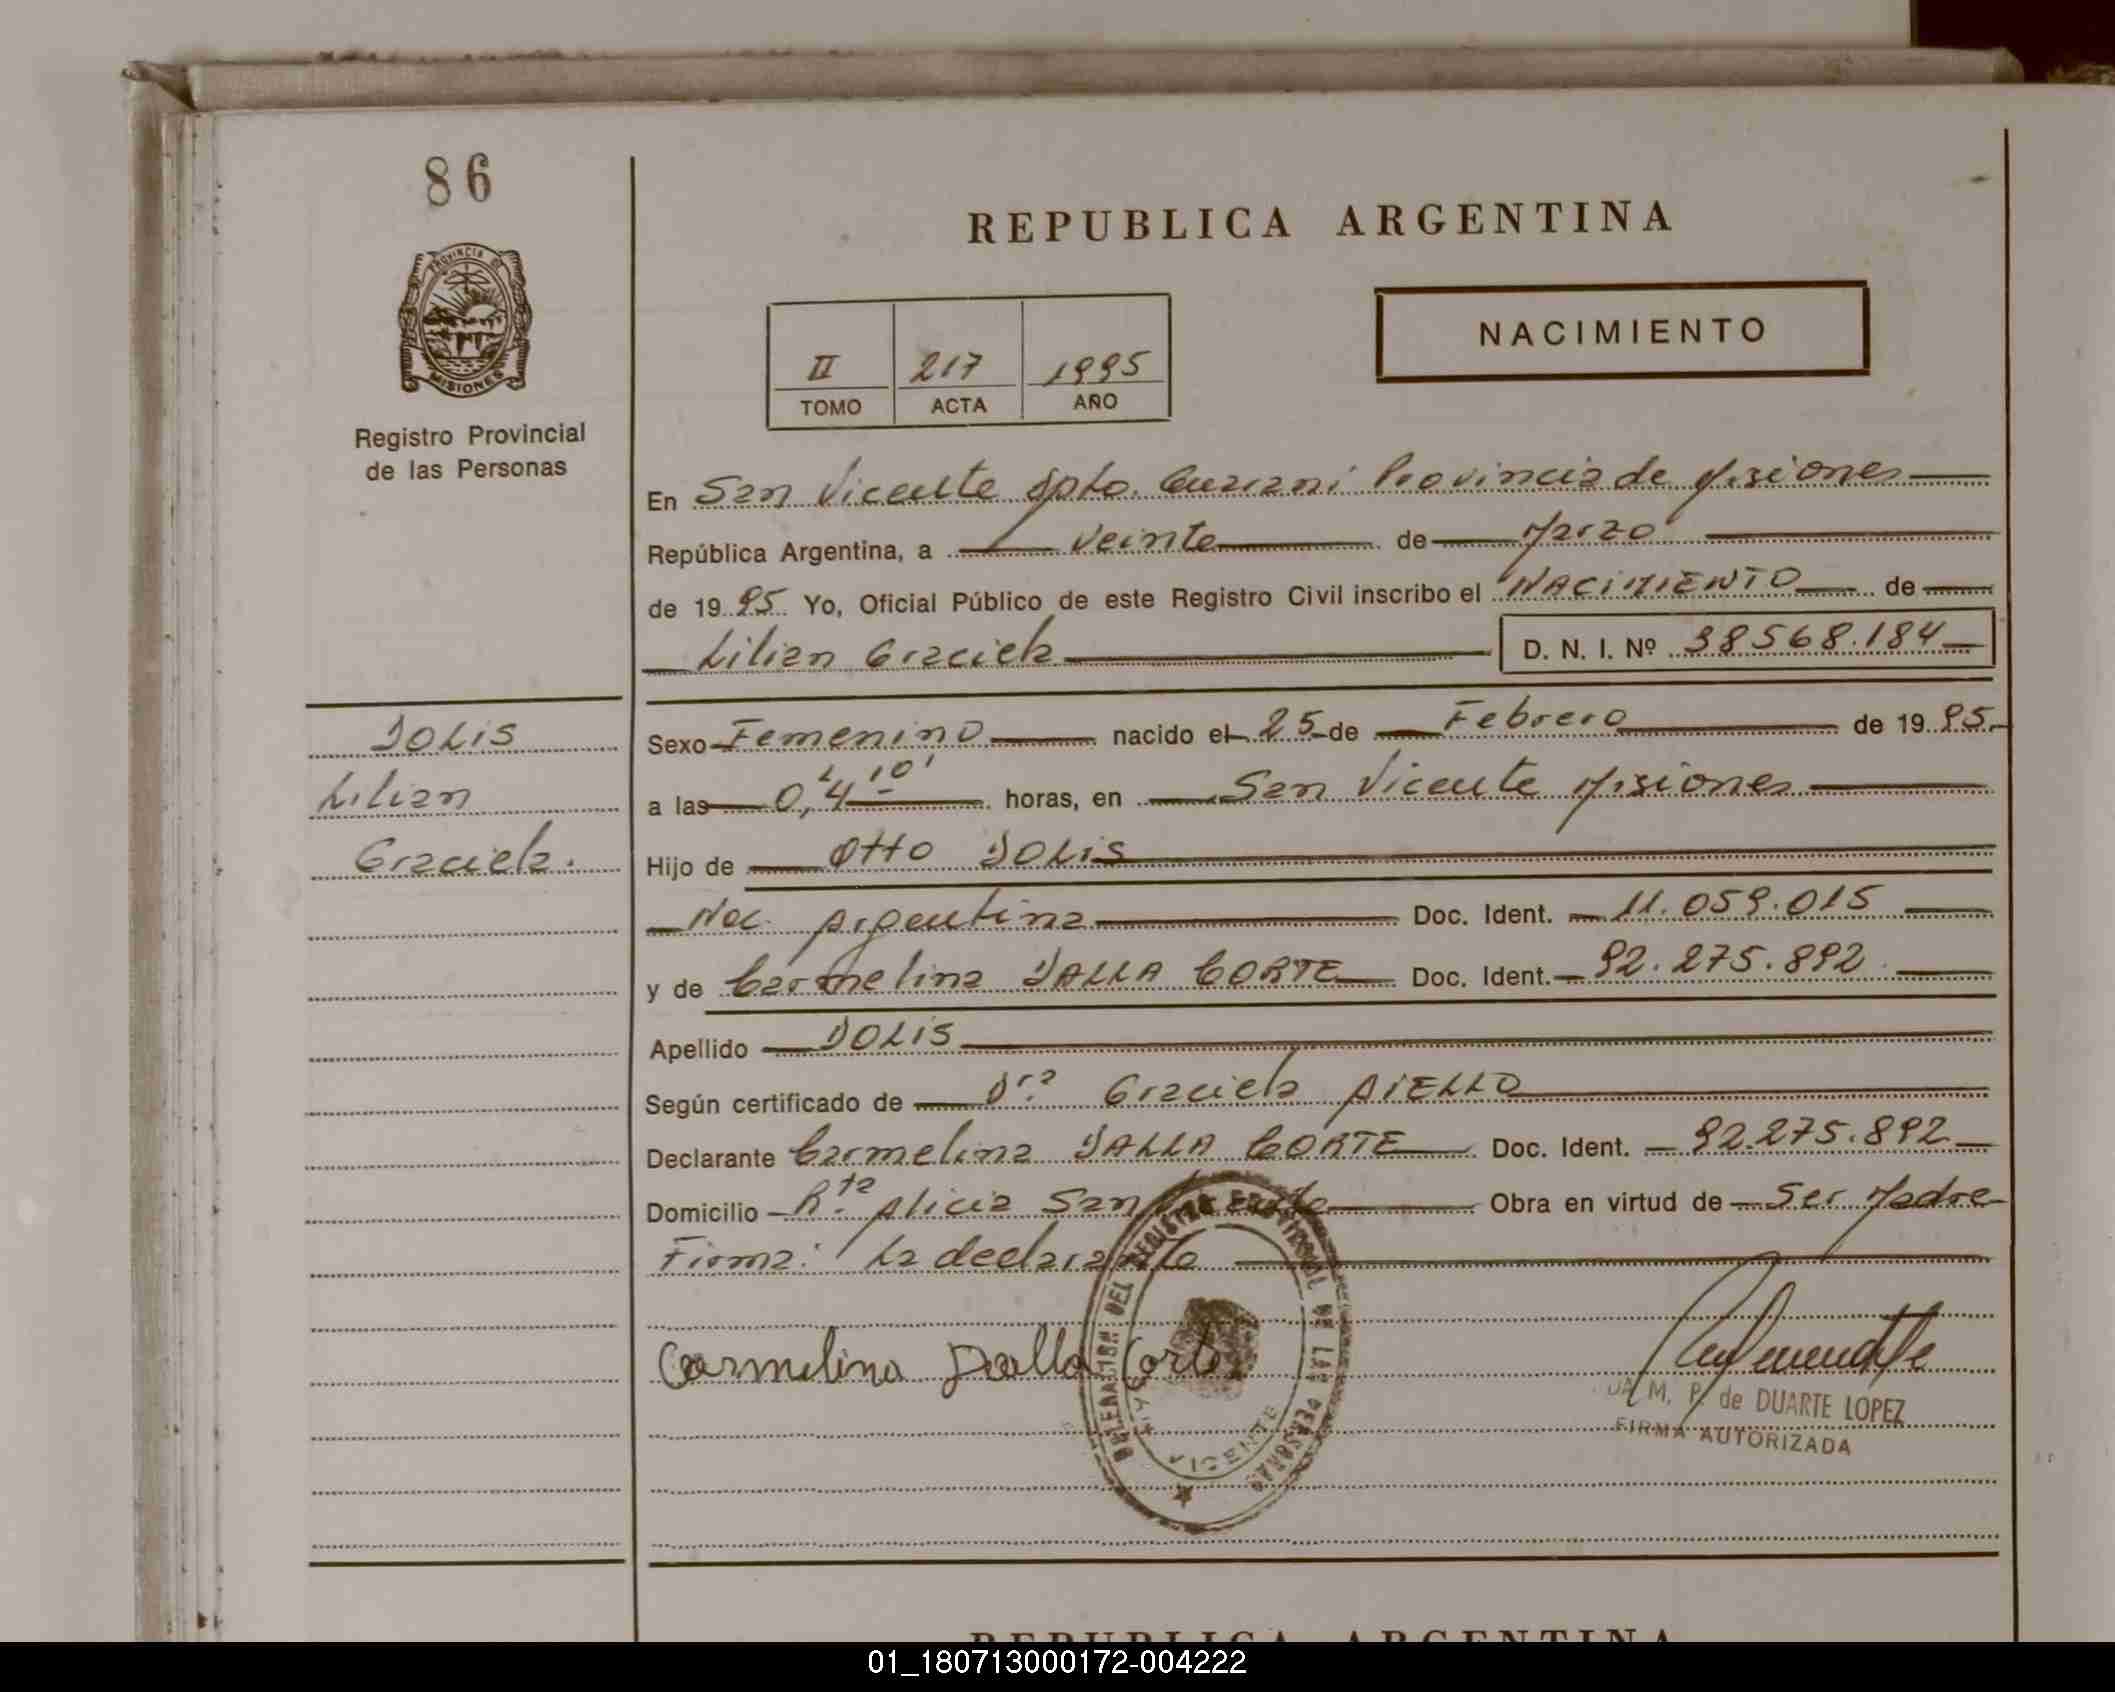 86
REPUBLICA ARGENTINA
NACIMIENTO
II 217 1995
TOMO ACTA AÑO
PROVINCIA DE
MISIONES
Registro Provincial
de las Personas
En San Vicente Dpto. Guaraní Provincia de Misiones
República Argentina, a veinte de Marzo
de 1995 Yo, Oficial Público de este Registro Civil inscribo el NACIMIENTO de
Lilian Graciela D. N. I. Nº 38568.184
DOLIS
Lilian
Graciela.
Sexo Femenino nacido el 25 de Febrero de 1995.
a las 0,4 10' horas, en San Vicente Misiones
Hijo de Otto DOLIS
Nac. Argentina Doc. Ident. 11.059.015
y de Carmelina DALLA CORTE Doc. Ident. 92.275.892
Apellido DOLIS
Según certificado de Dra. Graciela AIELLO
Declarante Carmelina DALLA CORTE Doc. Ident. 92.275.892
Domicilio Rta. Alicia San Vicente Obra en virtud de Ser Madre
Firma: La declarante
Carmelina Dalla Corte
DELEGACION DEL REGISTRO PROVINCIAL DE LAS PERSONAS
VICENTE
M. P. de DUARTE LOPEZ
FIRMA AUTORIZADA
REPUBLICA ARGENTINA
01_180713000172-004222